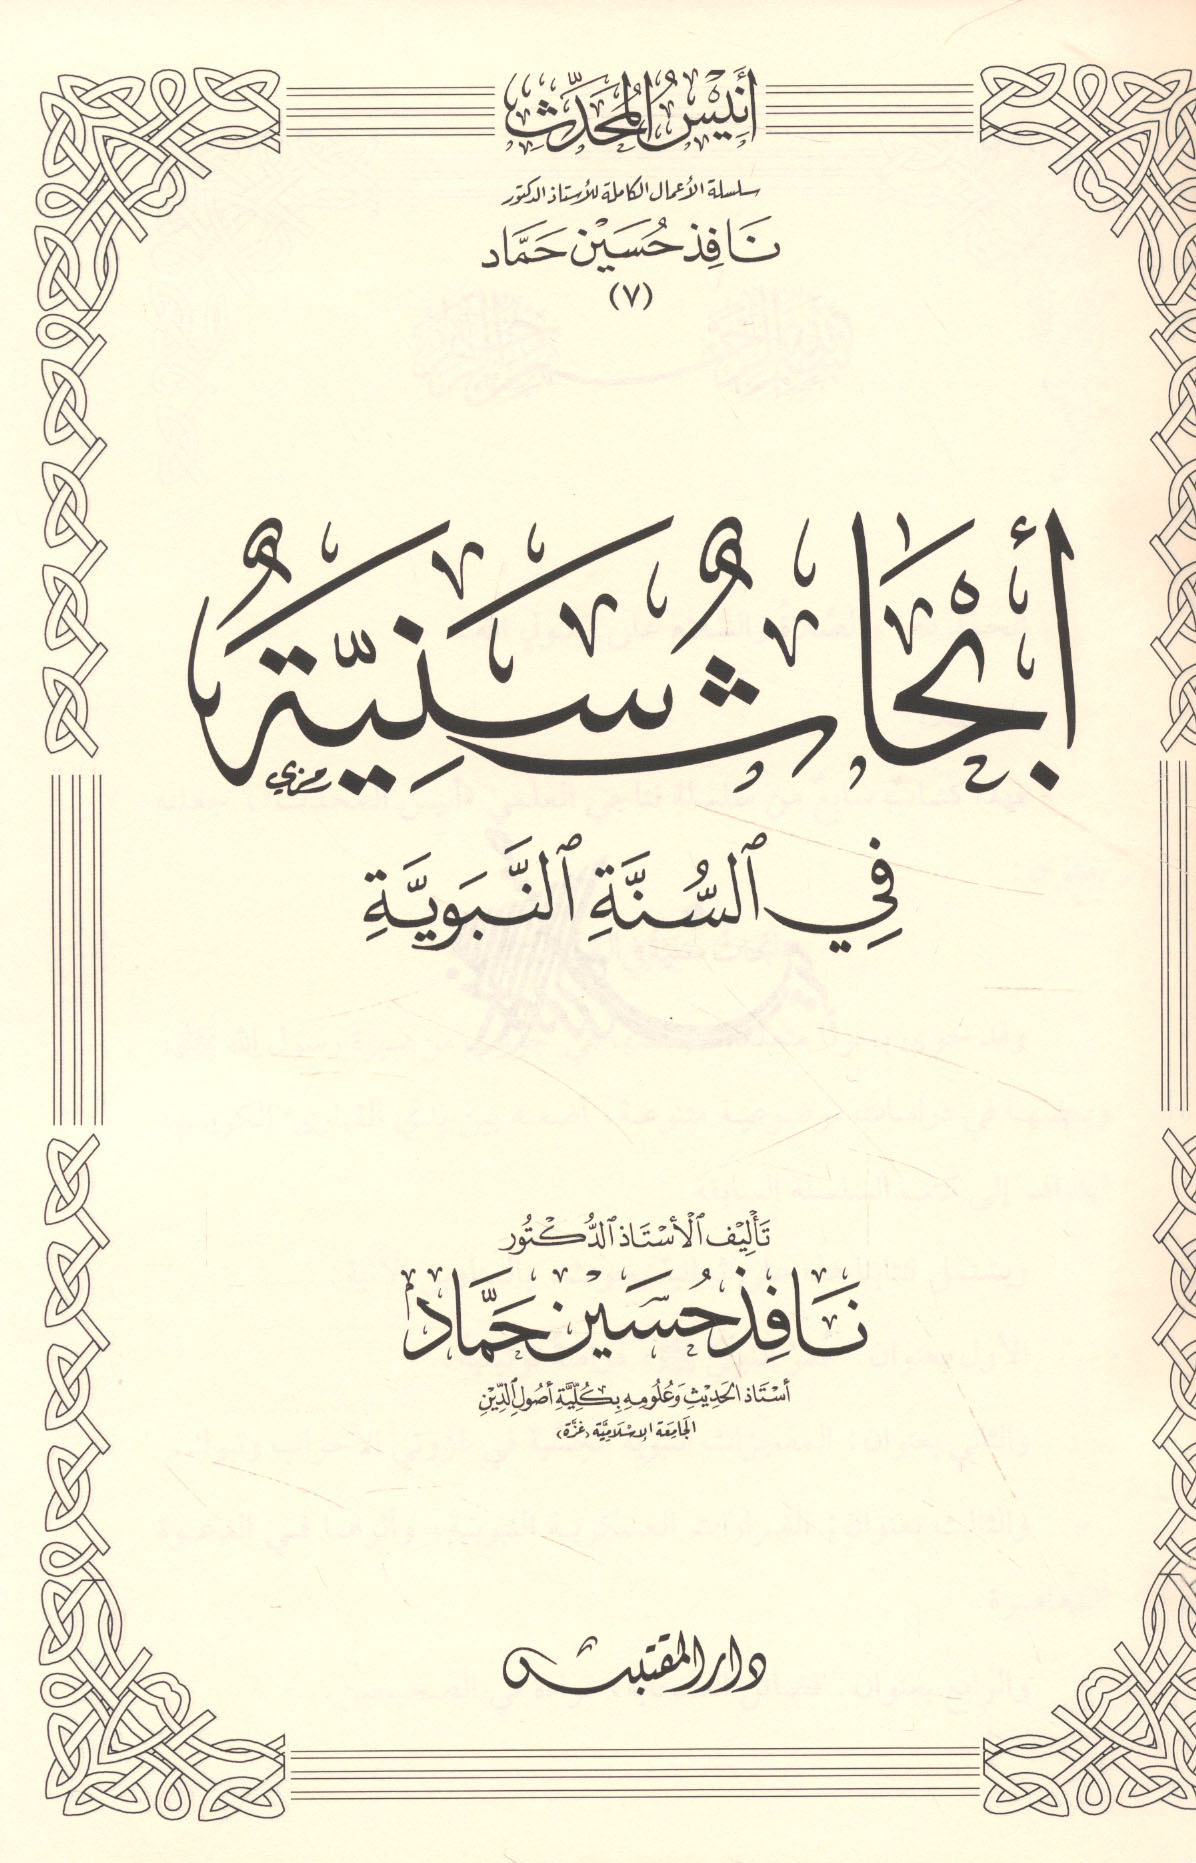 أَنِيسُ المُحَدِّث
سلسلة الأعمال الكاملة للأستاذ الدكتور
نَافِذ حُسَيْن حَمَّاد
(٧)
أَبْحَاثٌ سَنِيَّةٌ
فِي ٱلسُّنَّةِ ٱلنَّبَوِيَّةِ
تَأْلِيْف ٱلْأُسْتَاذ ٱلدُّكْتُور
نَافِذ حُسَيْن حَمَّاد
أُسْتَاذ الحَدِيْثِ وَعُلُومِهِ بِكُلِّيَّةِ أُصُولِ ٱلدِّيْنِ
الجَامِعَة الإِسْلَامِيَّة (غَزَّة)
دار المقتبس